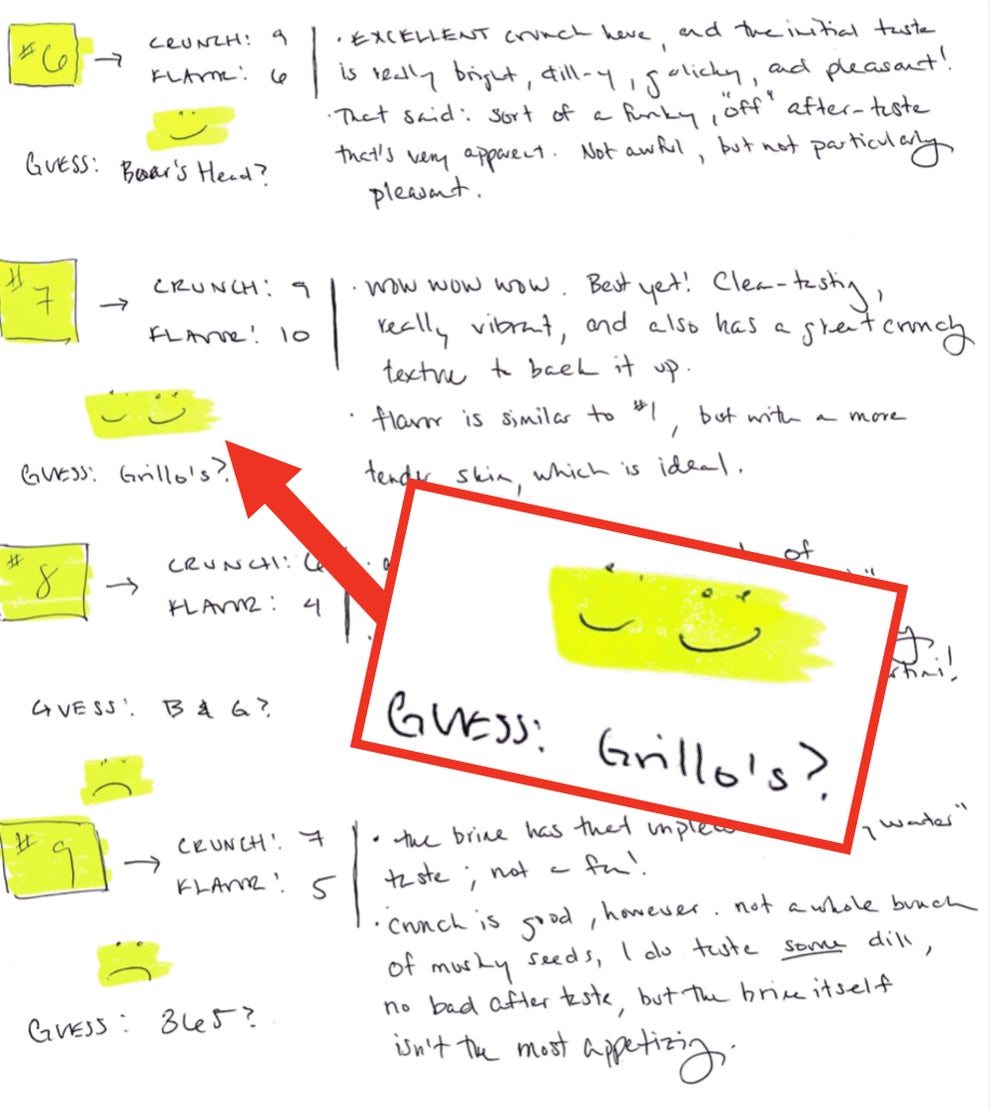 #6 → CRUNCH: 9
FLAVOR: 6
GUESS: Boar's Head?
· EXCELLENT crunch here, and the initial taste
is really bright, dill-y, garlicky, and pleasant!
· That said: sort of a funky, "off" after-taste
that's very apparent. Not awful, but not particularly
pleasant.
#7 → CRUNCH: 9
FLAVOR: 10
GUESS: Grillo's?
· WOW WOW WOW. Best yet! Clean-tasting,
really vibrant, and also has a great crunchy
texture to back it up.
· flavor is similar to #1, but with a more
tender skin, which is ideal.
#8 → CRUNCH: 6
FLAVOR: 4
GUESS: B & G?
of
GUESS: Grillo's?
#9 → CRUNCH: 7
FLAVOR: 5
GUESS: 365?
· the brine has that water"
taste; not a fan!
· crunch is good, however. not a whole bunch
of mushy seeds, I do taste some dill,
no bad after taste, but the brine itself
isn't the most appetizing.